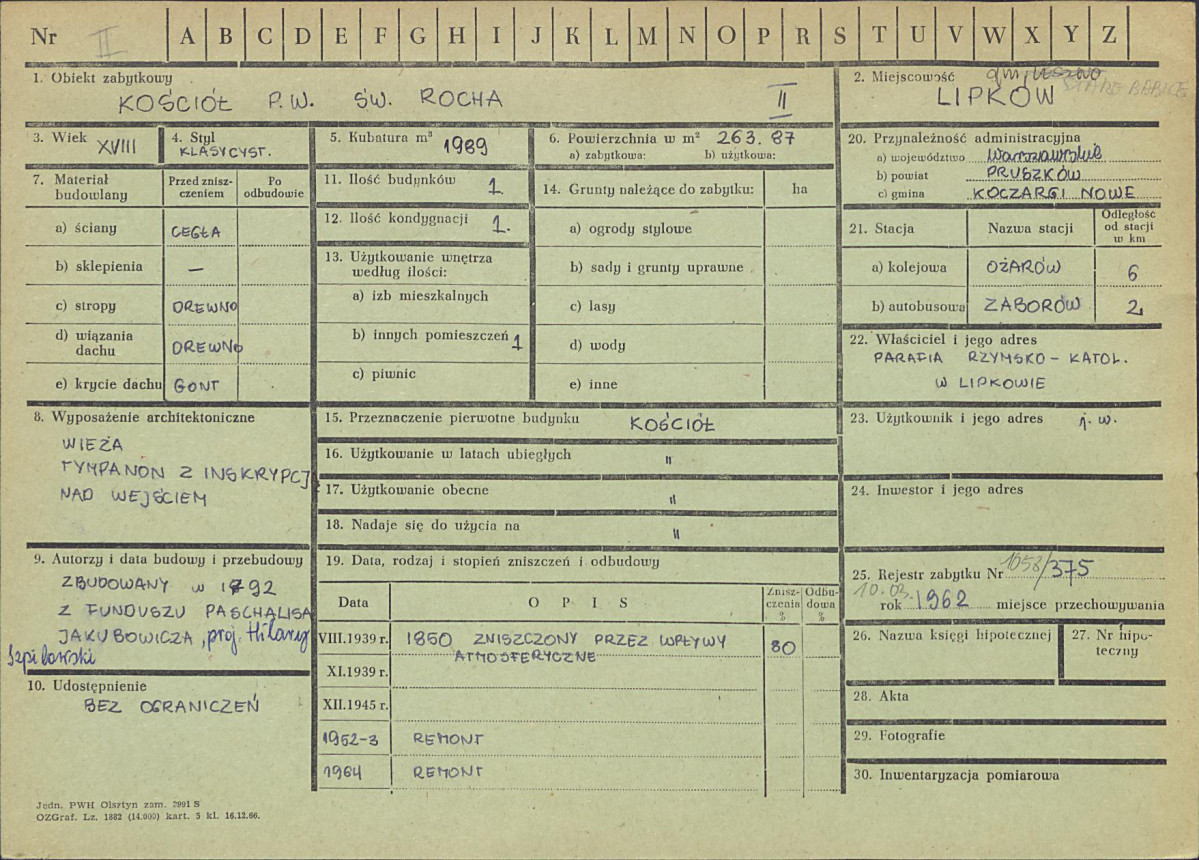 Nr II A B C D E F G H I J K L M N O P R S T U V W X Y Z
1. Obiekt zabytkowy
KOŚCIÓŁ P.W. ŚW. ROCHA II
2. Miejscowość gm. Leszno STARE BABICE
LIPKÓW
3. Wiek XVIII
4. Styl
KLASYCYST.
5. Kubatura m³ 1989
6. Powierzchnia w m² 263.87
a) zabytkowa: b) użytkowa:
7. Materiał budowlany
Przed zniszczeniem
Po odbudowie
a) ściany CEGŁA
b) sklepienia —
c) stropy DREWNO
d) wiązania dachu DREWNO
e) krycie dachu GONT
8. Wyposażenie architektoniczne
WIEŻA
TYMPANON Z INSKRYPCJĄ
NAD WEJŚCIEM
9. Autorzy i data budowy i przebudowy
ZBUDOWANY w 1792
Z FUNDUSZU PASCHALISA
JAKUBOWICZA, proj. Hilary
Szpilowski
10. Udostępnienie
BEZ OGRANICZEŃ
11. Ilość budynków 1
12. Ilość kondygnacji 1.
13. Użytkowanie wnętrza
według ilości:
a) izb mieszkalnych
b) innych pomieszczeń 1
c) piwnic
14. Grunty należące do zabytku: ha
a) ogrody stylowe
b) sady i grunty uprawne
c) lasy
d) wody
e) inne
15. Przeznaczenie pierwotne budynku KOŚCIÓŁ
16. Użytkowanie w latach ubiegłych "
17. Użytkowanie obecne "
18. Nadaje się do użycia na "
19. Data, rodzaj i stopień zniszczeń i odbudowy
Data
O P I S
Zniszczenia %
Odbudowa %
VIII.1939 r. 1850 ZNISZCZONY PRZEZ WPŁYWY 80
ATMOSFERYCZNE
XI.1939 r.
XII.1945 r.
1952-3 REMONT
1964 REMONT
20. Przynależność administracyjna
a) województwo Warszawskie
b) powiat PRUSZKÓW
c) gmina KOCZARGI NOWE
21. Stacja
Nazwa stacji
Odległość od stacji w km
a) kolejowa OŻARÓW 6
b) autobusowa ZABORÓW 2
22. Właściciel i jego adres
PARAFIA RZYMSKO-KATOL.
W LIPKOWIE
23. Użytkownik i jego adres j. w.
24. Inwestor i jego adres
25. Rejestr zabytku Nr 1058/375
10.03. rok 1962 miejsce przechowywania
26. Nazwa księgi hipotecznej
27. Nr hipoteczny
28. Akta
29. Fotografie
30. Inwentaryzacja pomiarowa
Jedn. PWH Olsztyn zam. 2991 S
OZGraf. Lz. 1882 (14.000) kart. 5 kl. 16.12.66.